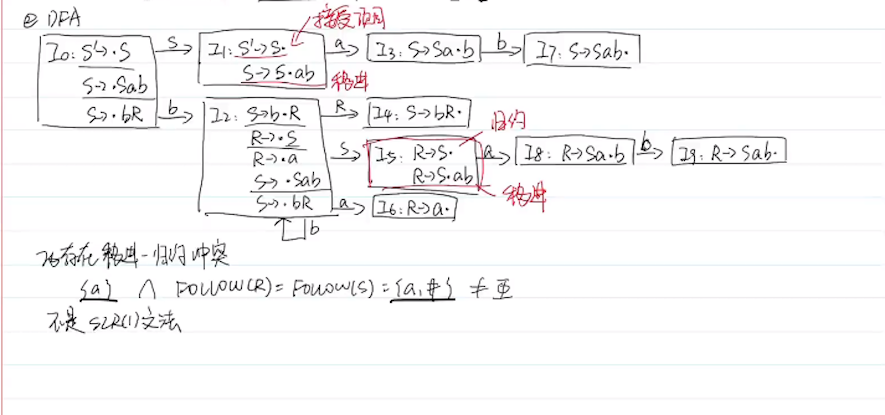 ② DFA
接受项目
I0: S'→·S
S→·Sab
S→·bR
S
b
I1: S'→S·
S→S·ab
移进
a
I3: S→Sa·b
b
I7: S→Sab·
I2: S→b·R
R→·S
R→·a
S→·Sab
S→·bR
b
R
I4: S→bR·
归约
S
I5: R→S·
R→S·ab
移进
a
I8: R→Sa·b
b
I9: R→Sab·
a
I6: R→a·
I5存在移进-归约冲突
{a} ∩ FOLLOW(R)=FOLLOW(S)={a,#} ≠ Φ
不是SLR(1)文法